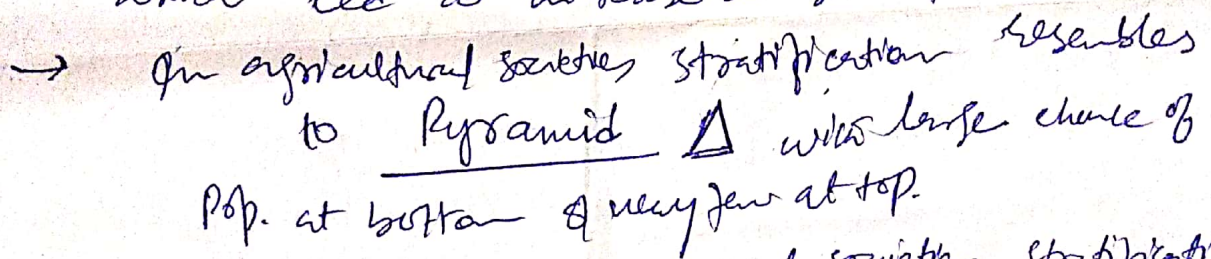 → In agricultural societies stratification resembles
to Pyramid △ with large chunk of
Pop. at bottom & very few at top.
stratificati